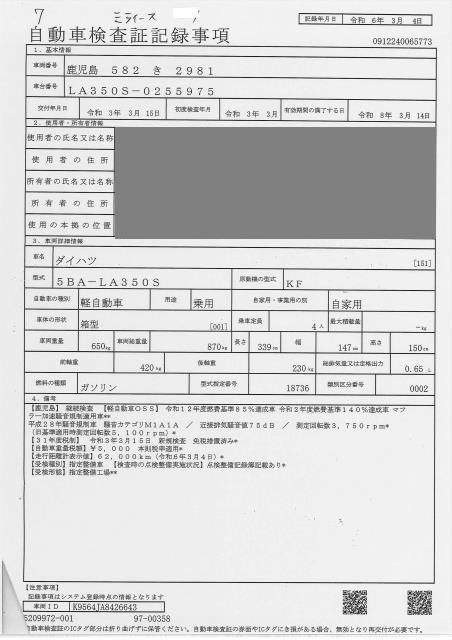 7 ミライース
記録年月日 令和 6年 3月 4日
自動車検査証記録事項
0912240065773
1. 基本情報
車両番号 鹿児島 582 き 2981
車台番号 LA350S-0255975
交付年月日 令和 3年 3月 15日 初度検査年月 令和 3年 3月 有効期間の満了する日 令和 8年 3月 14日
2. 使用者・所有者情報
使用者の氏名又は名称
使用者の住所
所有者の氏名又は名称
所有者の住所
使用の本拠の位置
3. 車両詳細情報
車名 ダイハツ [151]
型式 5BA-LA350S 原動機の型式 KF
自動車の種別 軽自動車 用途 乗用 自家用・事業用の別 自家用
車体の形状 箱型 [001] 乗車定員 4人 最大積載量 -kg
車両重量 650kg 車両総重量 870kg 長さ 339cm 幅 147cm 高さ 150cm
前軸重 420kg 後軸重 230kg 総排気量又は定格出力 0.65 L
燃料の種類 ガソリン 型式指定番号 18736 類別区分番号 0002
4. 備考
【鹿児島】 継続検査 【軽自動車OSS】 令和12年度燃費基準85%達成車 令和2年度燃費基準140%達成車 マフ
ラー加速騒音規制適用車**
平成28年騒音規制車 騒音カテゴリM1A1A ／ 近接排気騒音値75dB ／ 測定回転数3,750rpm*
(旧基準適用時測定回転数5,100rpm)*
【31年度税制】 令和3年3月15日 新規検査 免税措置済み*
【自動車重量税額】￥5,000 本則税率適用*
【走行距離計表示値】62,000km(令和6年3月4日)*
【受検種別】指定整備車 【検査時の点検整備実施状況】点検整備記録簿記載あり*
【受検形態】指定整備工場**
【注意事項】
記録事項はシステム登録時点の情報となります
車両ID K9564JA8426643
5209972-001 97-00358
自動車検査証のICタグ部分は折り曲げずに保管ください。自動車検査証の券面やICタグにき損がある場合、無効となり再交付が必要です。